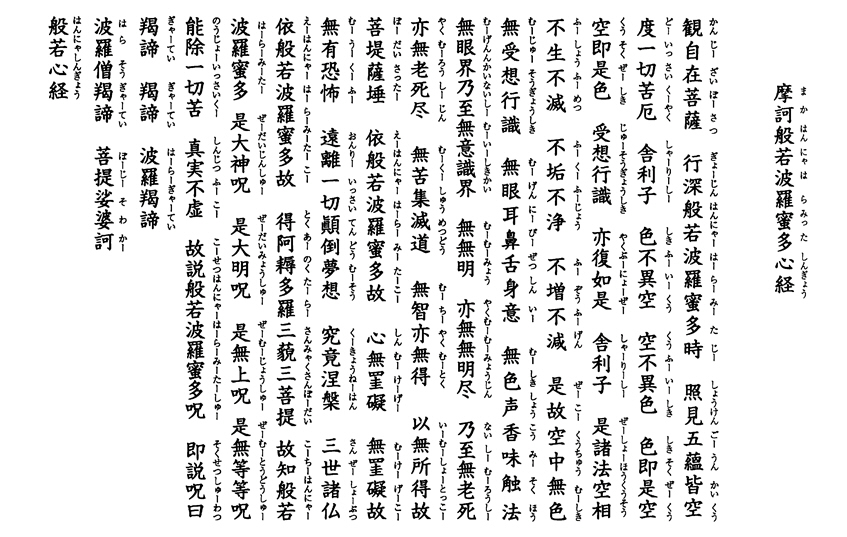 まかはんにゃはらみったしんぎょう
摩訶般若波羅蜜多心経
かんじーざいぼーさつ ぎょーじんはんにゃーはーらーみーたーじー しょうけんごーうんかいくう
観自在菩薩 行深般若波羅蜜多時 照見五蘊皆空
どーいっさいくーやく しゃーりーしー しきふーいーくう くうふーいーしき しきそくぜーくう
度一切苦厄 舎利子 色不異空 空不異色 色即是空
くうそくぜーしき じゅーそうぎょうしき やくぶーにょーぜー しゃーりーしー ぜーしょーほうくうそう
空即是色 受想行識 亦復如是 舎利子 是諸法空相
ふーしょうふーめつ ふーくーふーじょう ふーぞうふーげん ぜーこーくうちゅうむーしき
不生不滅 不垢不浄 不増不減 是故空中無色
むーじゅーそうぎょうしき むーげんにーびーぜつしんいー むーしきしょうこうみーそくほう
無受想行識 無眼耳鼻舌身意 無色声香味触法
むーげんかいないしーむーいーしきかい むーむーみょう やくむーむーみょうじん ないしーむーろうしー
無眼界乃至無意識界 無無明 亦無無明尽 乃至無老死
やくむーろうしーじん むーくーしゅうめつどう むーちーやくむーとく いーむーしょーとっこー
亦無老死尽 無苦集滅道 無智亦無得 以無所得故
ぼーだいさったー えーはんにゃーはーらーみーたーこー しんむーけーげー むーけーげーこー
菩提薩埵 依般若波羅蜜多故 心無罣礙 無罣礙故
むーうーくーふー おんりーいっさいてんどうむーそう くーきょうねーはん さんぜーしょーぶつ
無有恐怖 遠離一切顛倒夢想 究竟涅槃 三世諸仏
えーはんにゃーはーらーみーたーこー とくあーのくたーらーさんみゃくさんぼーだい こーちーはんにゃー
依般若波羅蜜多故 得阿耨多羅三藐三菩提 故知般若
はーらーみーたー ぜーだいじんしゅー ぜーだいみょうしゅー ぜーむーじょうしゅー ぜーむーとうどうしゅー
波羅蜜多 是大神呪 是大明呪 是無上呪 是無等等呪
のうじょーいっさいくー しんじつふーこー こーせつはんにゃーはーらーみーたーしゅー そくせつしゅーわつ
能除一切苦 真実不虚 故説般若波羅蜜多呪 即説呪曰
ぎゃーてい ぎゃーてい はーらーぎゃーてい
羯諦 羯諦 波羅羯諦
はらそうぎゃーてい ぼーじーそわかー
波羅僧羯諦 菩提娑婆訶
はんにゃしんぎょう
般若心経